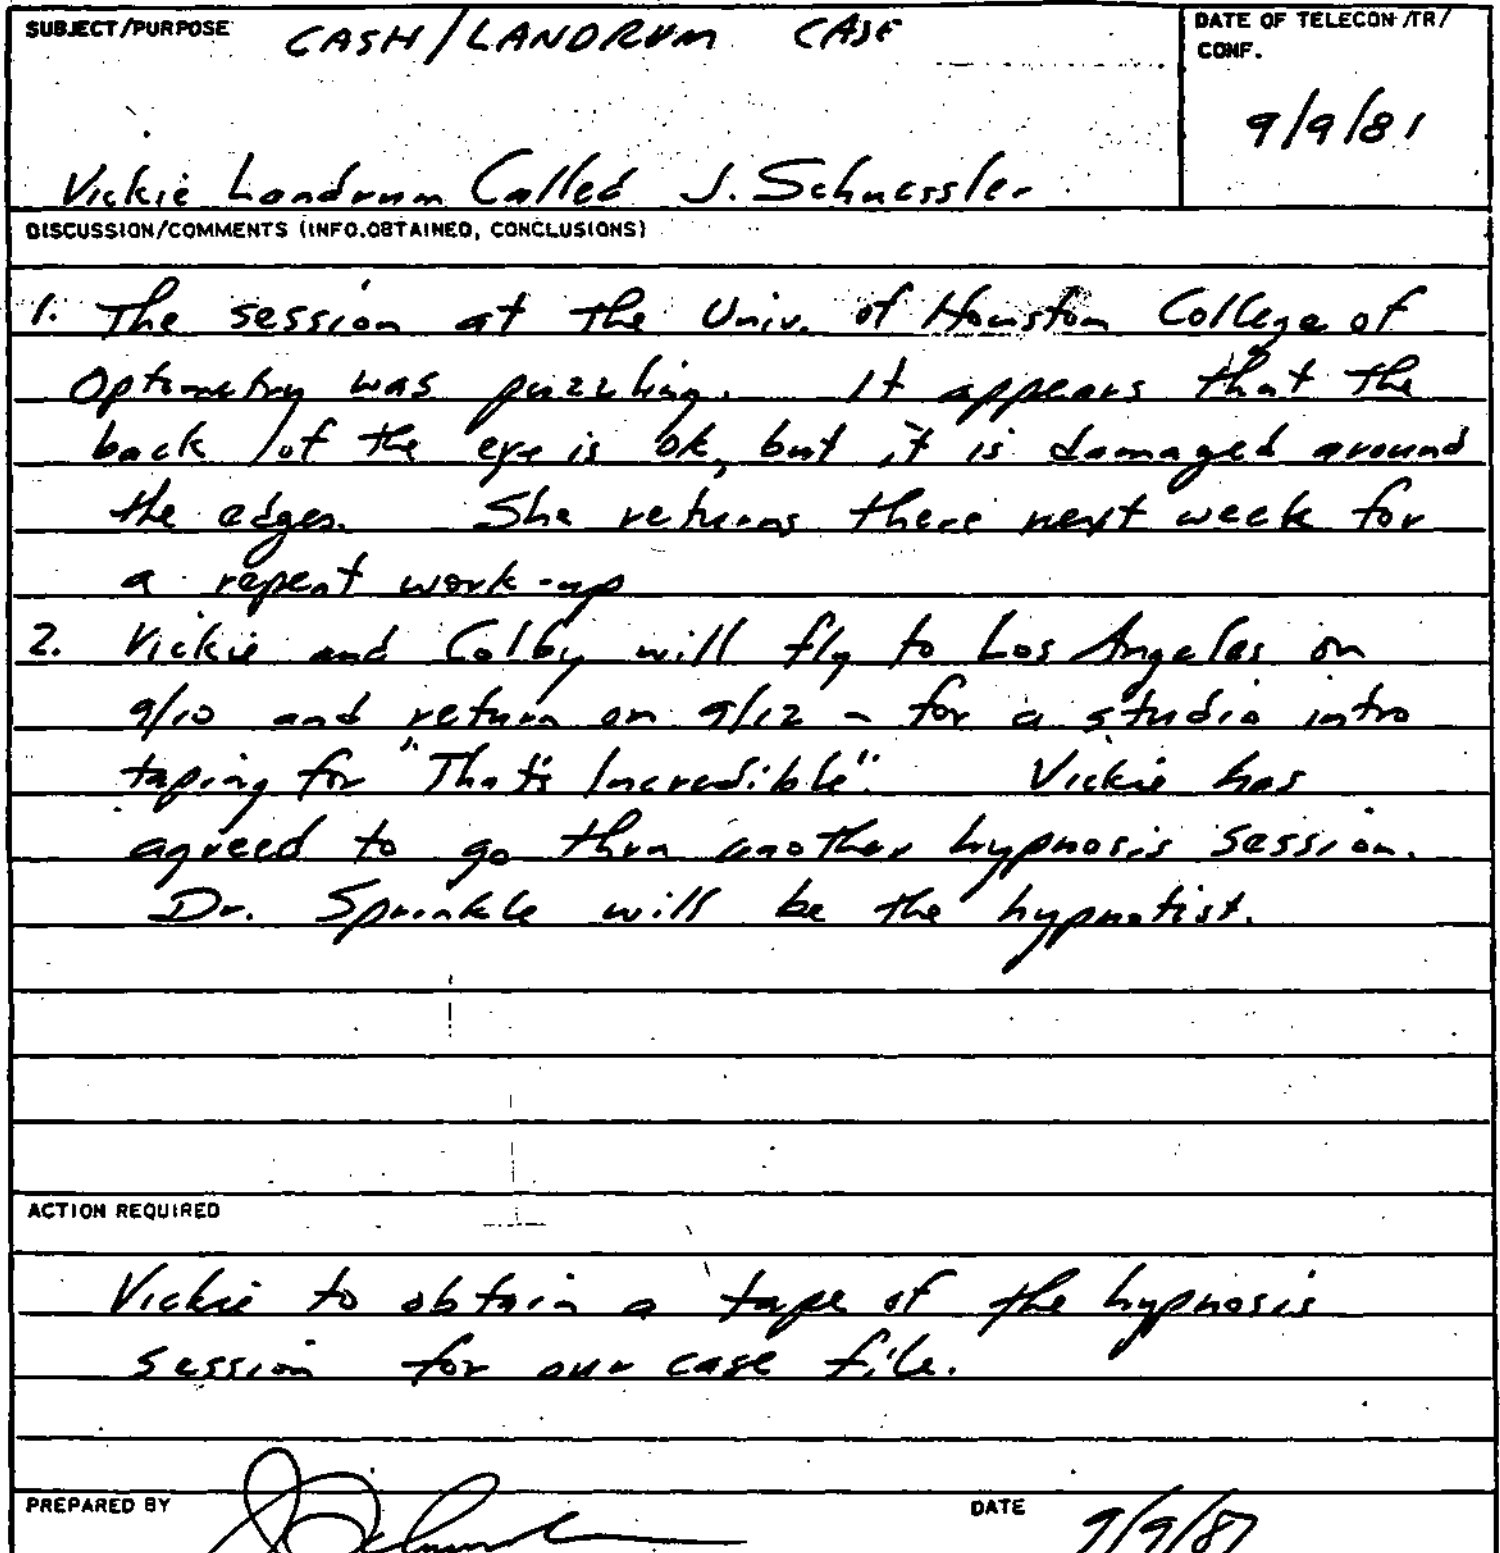 SUBJECT/PURPOSE CASH/LANDRUM CASE
DATE OF TELECON /TR/
CONF.
9/9/81
Vickie Landrum Called J. Schuessler
DISCUSSION/COMMENTS (INFO.OBTAINED, CONCLUSIONS)
1. The session at the Univ. of Houston College of
Optometry was puzzling. It appears that the
back of the eye is ok, but it is damaged around
the edges. She returns there next week for
a repeat work-up
2. Vickie and Colby will fly to Los Angeles on
9/10 and return on 9/12 - for a studio intro
taping for "That's Incredible". Vickie has
agreed to go thru another hypnosis session.
Dr. Sprinkle will be the hypnotist.
ACTION REQUIRED
Vickie to obtain a tape of the hypnosis
session for our case file.
PREPARED BY
DATE